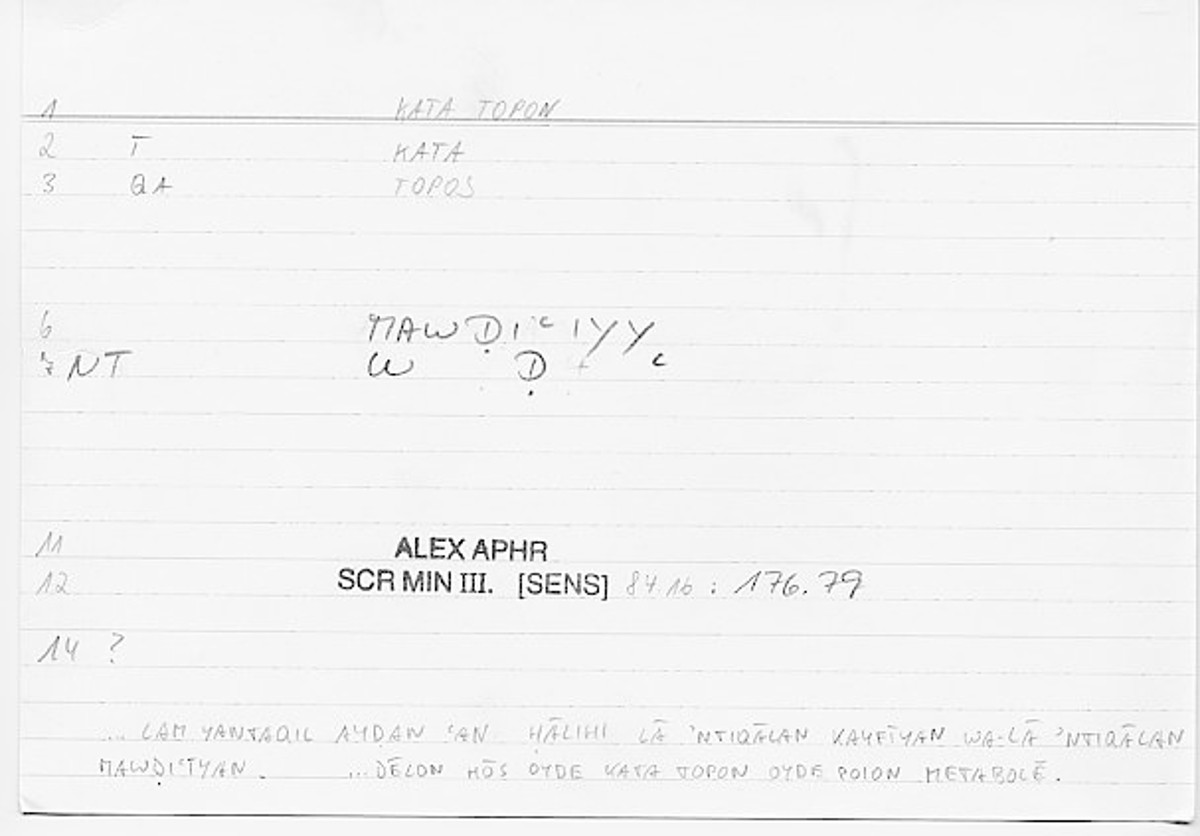 1 KATA TOPON
2 T KATA
3 QA TOPOS
6 MAWḌIʿIYY
7 NT W Ḍ ʿ
11 ALEX APHR
12 SCR MIN III. [SENS] 84 16 : 176.79
14 ?
... LAM YANTAQIL AYḌAN ʿAN ḤĀLIHI LĀ ʾNTIQĀLAN KAYFĪYAN WA-LĀ ʾNTIQĀLAN
MAWḌIʿĪYAN. ...DĒLON HŌS OYDE KATA TOPON OYDE POION METABOLĒ.